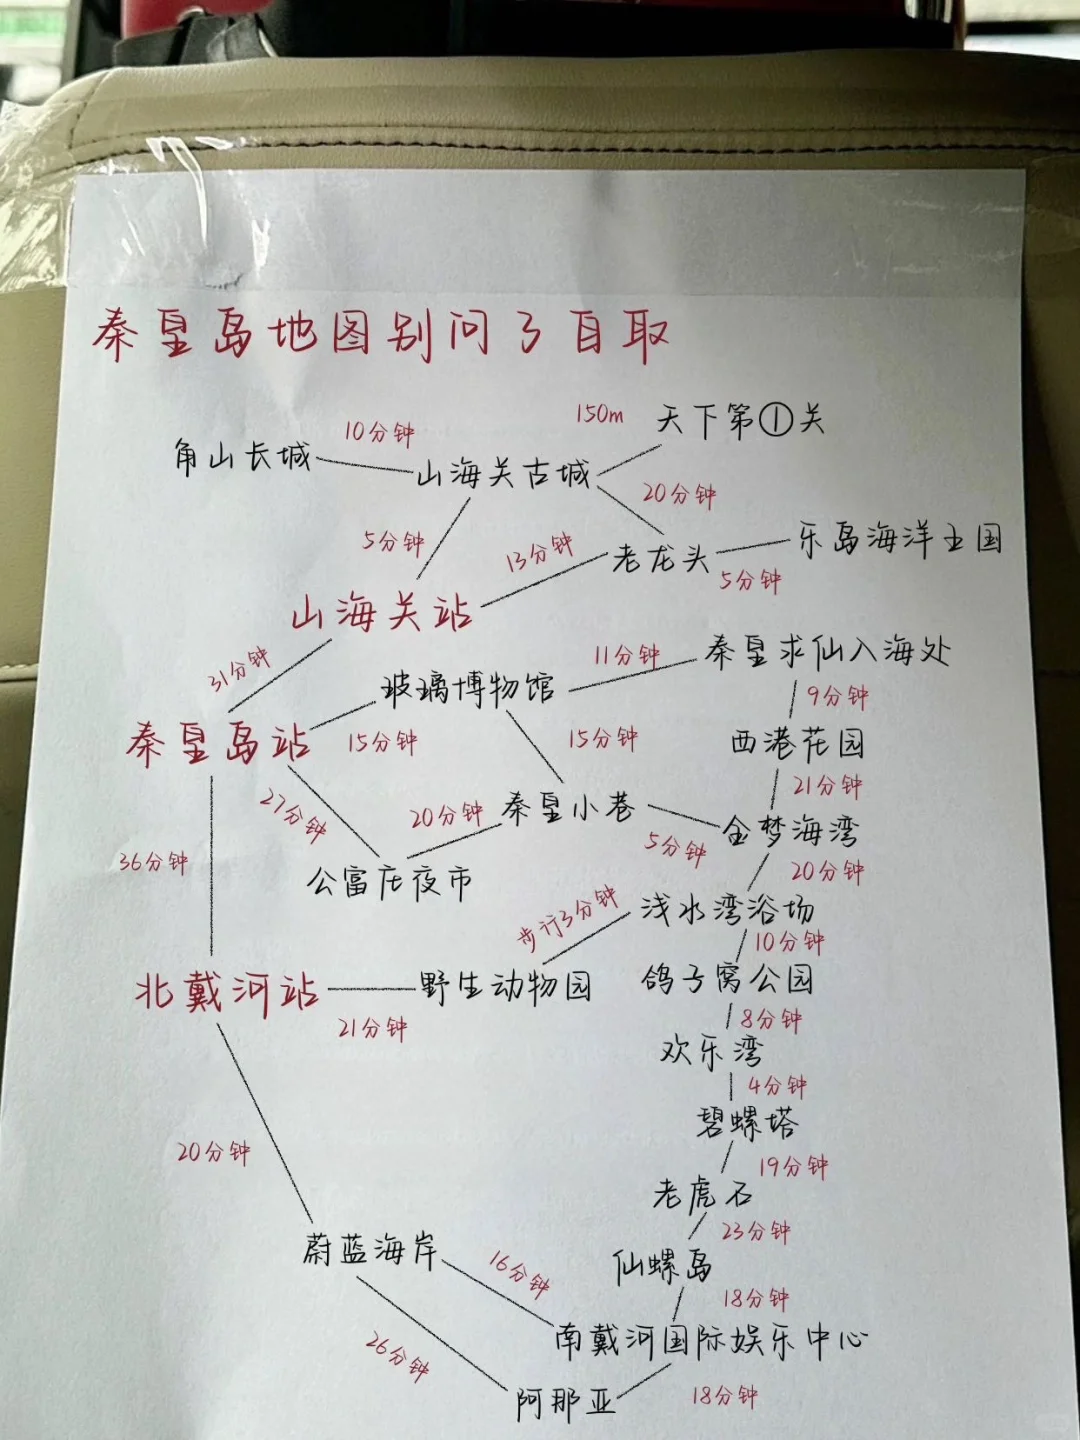 秦皇岛地图别问了自取
150m 天下第①关
10分钟
角山长城 山海关古城
20分钟
5分钟 13分钟 老龙头 乐岛海洋王国
5分钟
山海关站
31分钟 11分钟 秦皇求仙入海处
玻璃博物馆 9分钟
秦皇岛站 15分钟 15分钟 西港花园
27分钟 20分钟 秦皇小巷 21分钟
5分钟 金梦海湾
36分钟 公富庄夜市 20分钟
步行3分钟 浅水湾浴场
10分钟
北戴河站 野生动物园 鸽子窝公园
21分钟 8分钟
欢乐湾
4分钟
碧螺塔
20分钟 19分钟
老虎石
23分钟
蔚蓝海岸 16分钟 仙螺岛
18分钟
26分钟 南戴河国际娱乐中心
阿那亚 18分钟